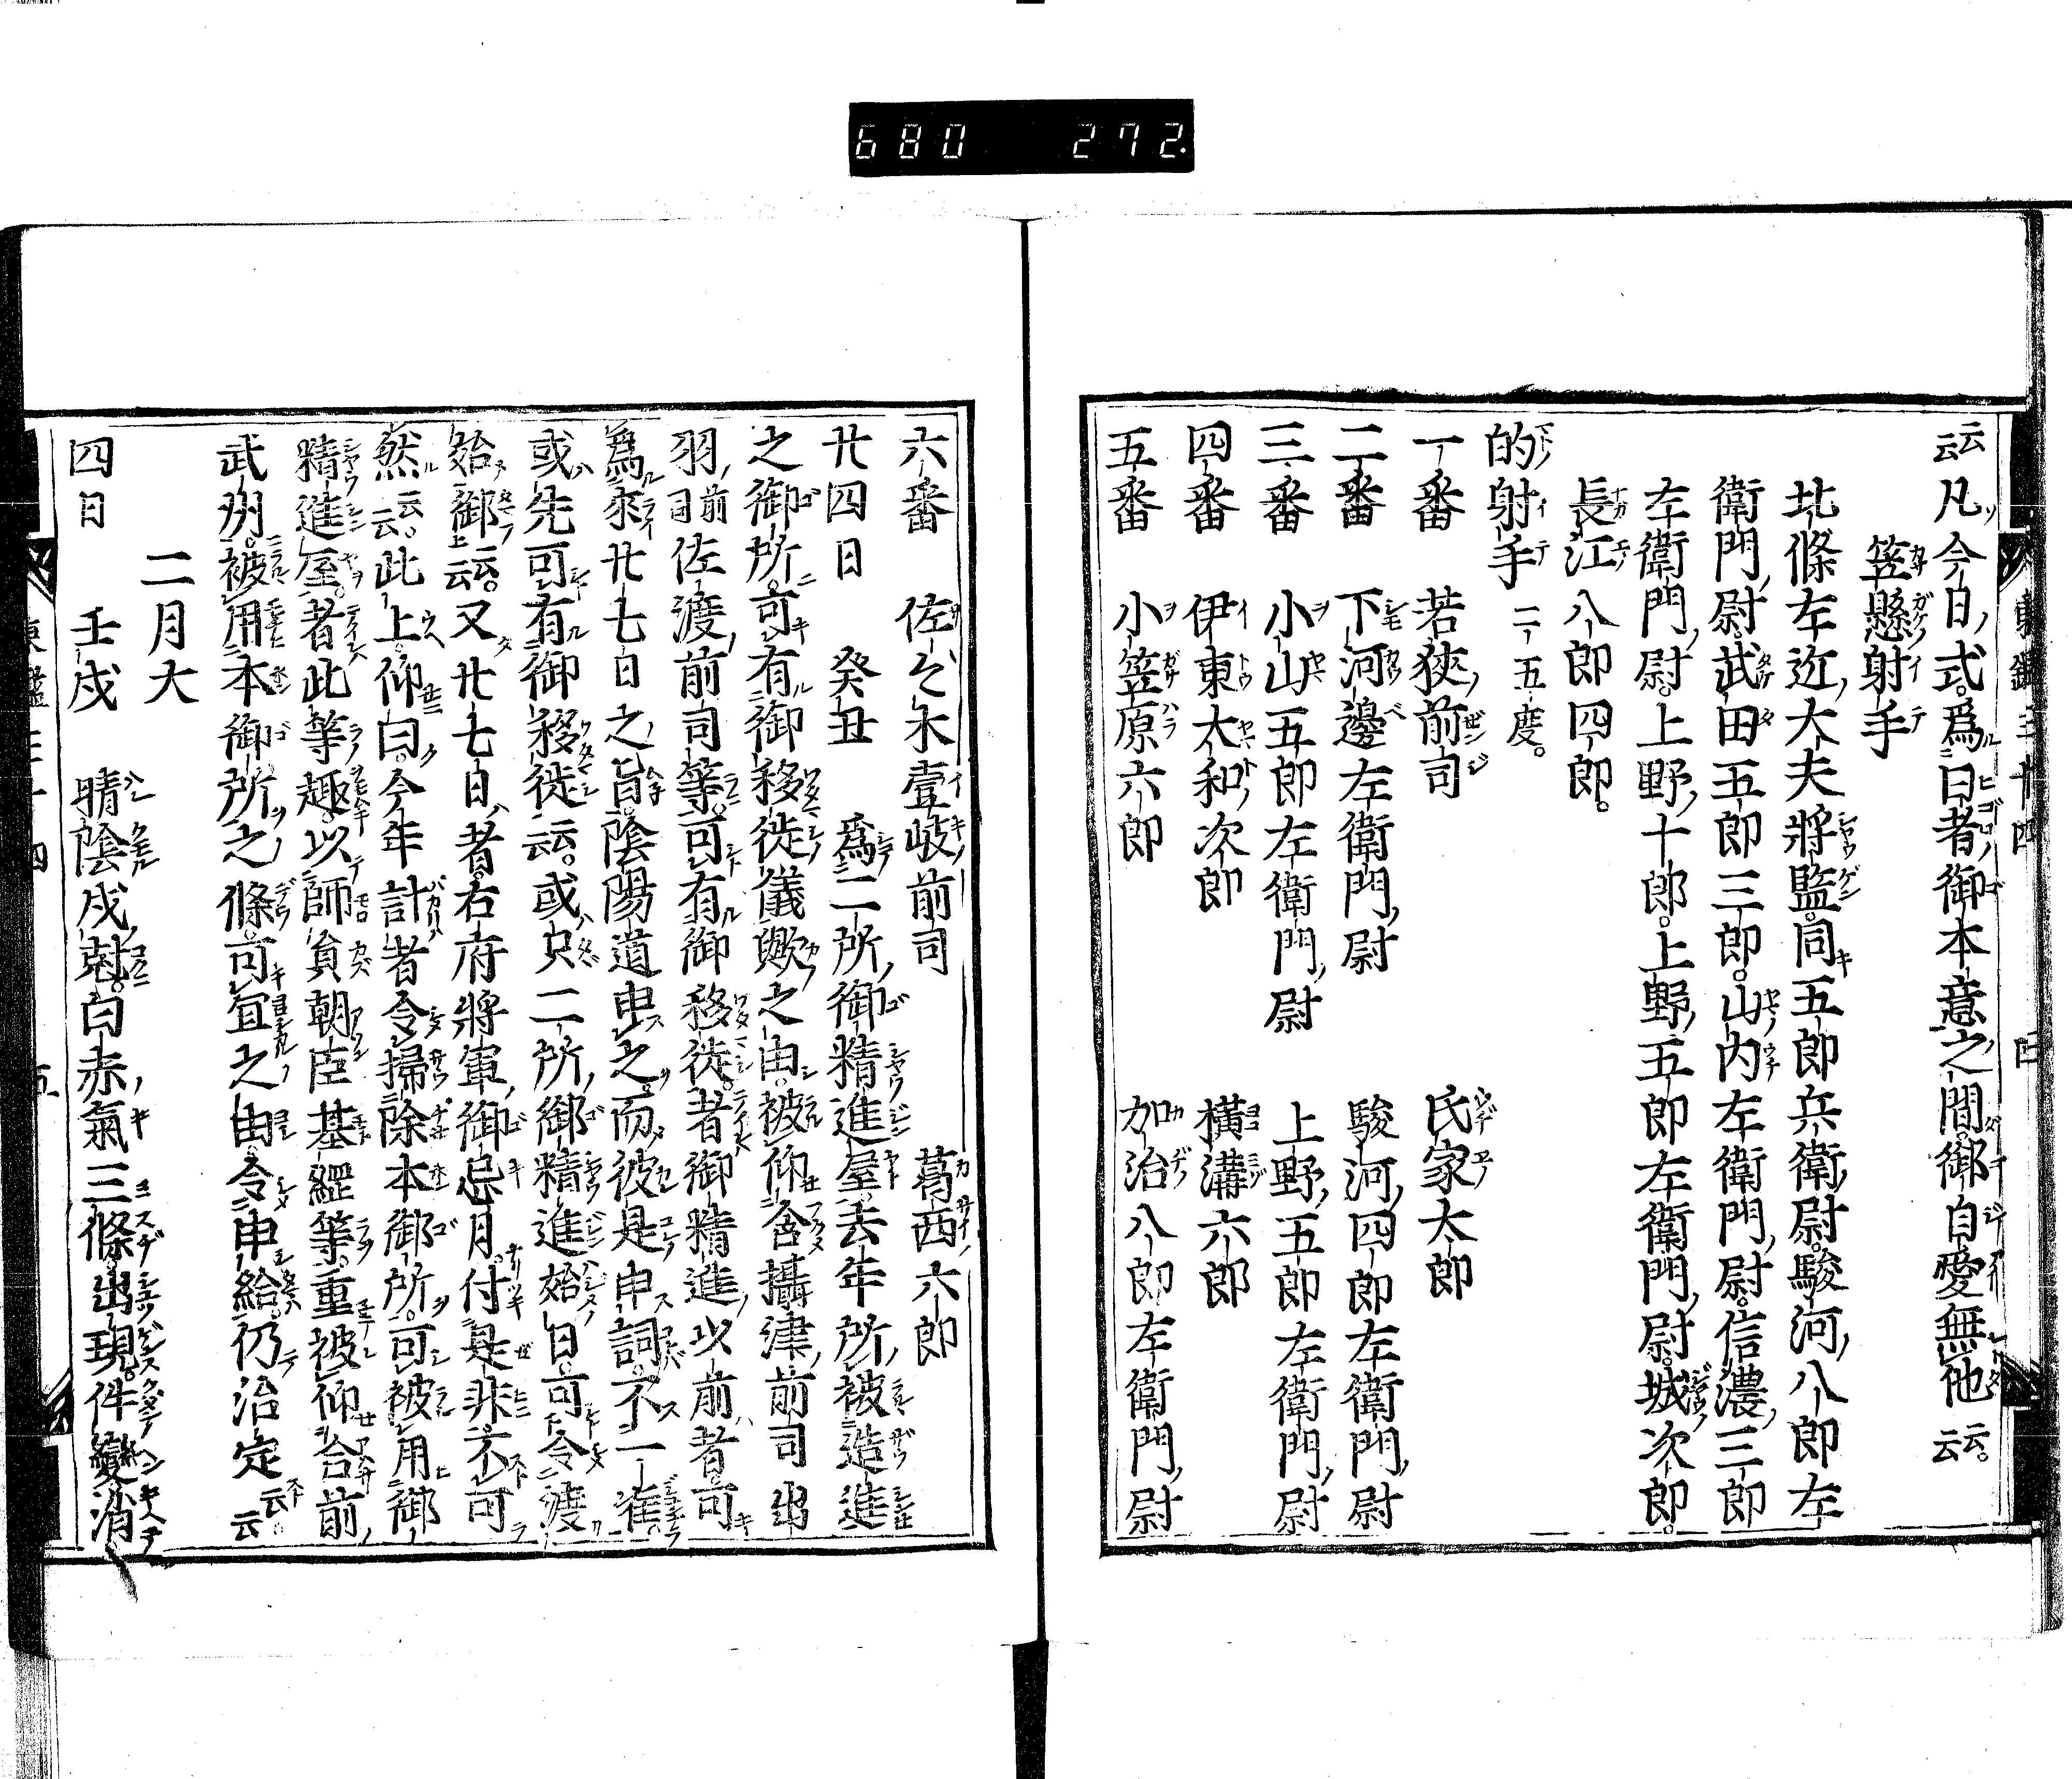 680 272.
云云凡今日式。爲日者御本意之間。御自愛無他云云。
笠懸射手
北條左近大夫將監。同五郎兵衛尉。駿河八郎左
衛門尉。武田五郎三郎。山内左衛門尉。信濃三郎
左衛門尉。上野十郎。上野五郎左衛門尉。城次郎。
長江八郎四郎。
的射手 二五度。
一番 若狹前司 氏家太郎
二番 下河邊左衛門尉 駿河四郎左衛門尉
三番 小山五郎左衛門尉 上野五郎左衛門尉
四番 伊東大和次郎 横溝六郎
五番 小笠原六郎 加治八郎左衛門尉
六番 佐々木壹岐前司 葛西六郎
廿四日 癸丑 爲二所御精進屋。去年所被造進
之御所。可有御移徙儀歟之由。被仰含攝津前司出
羽前司佐渡前司等。可有御移徙者。御精進以前者。可
爲來廿七日之旨。陰陽道申之。而彼是申詞。不一准。
或先可有御移徙云云。或只二所御精進始日。可令渡
始御云云。又廿七日者。右府將軍御忌月。付是非不可
然云云。此上仰曰。今年計者令掃除本御所。可被用御
精進屋。者此等趣。以師員朝臣基綱等。重被仰合前
武州。被用本御所之條。可宜之由。令申給。仍治定云云。
二月大
四日 壬戌 晴陰戌尅。白赤氣三條出現。件變消